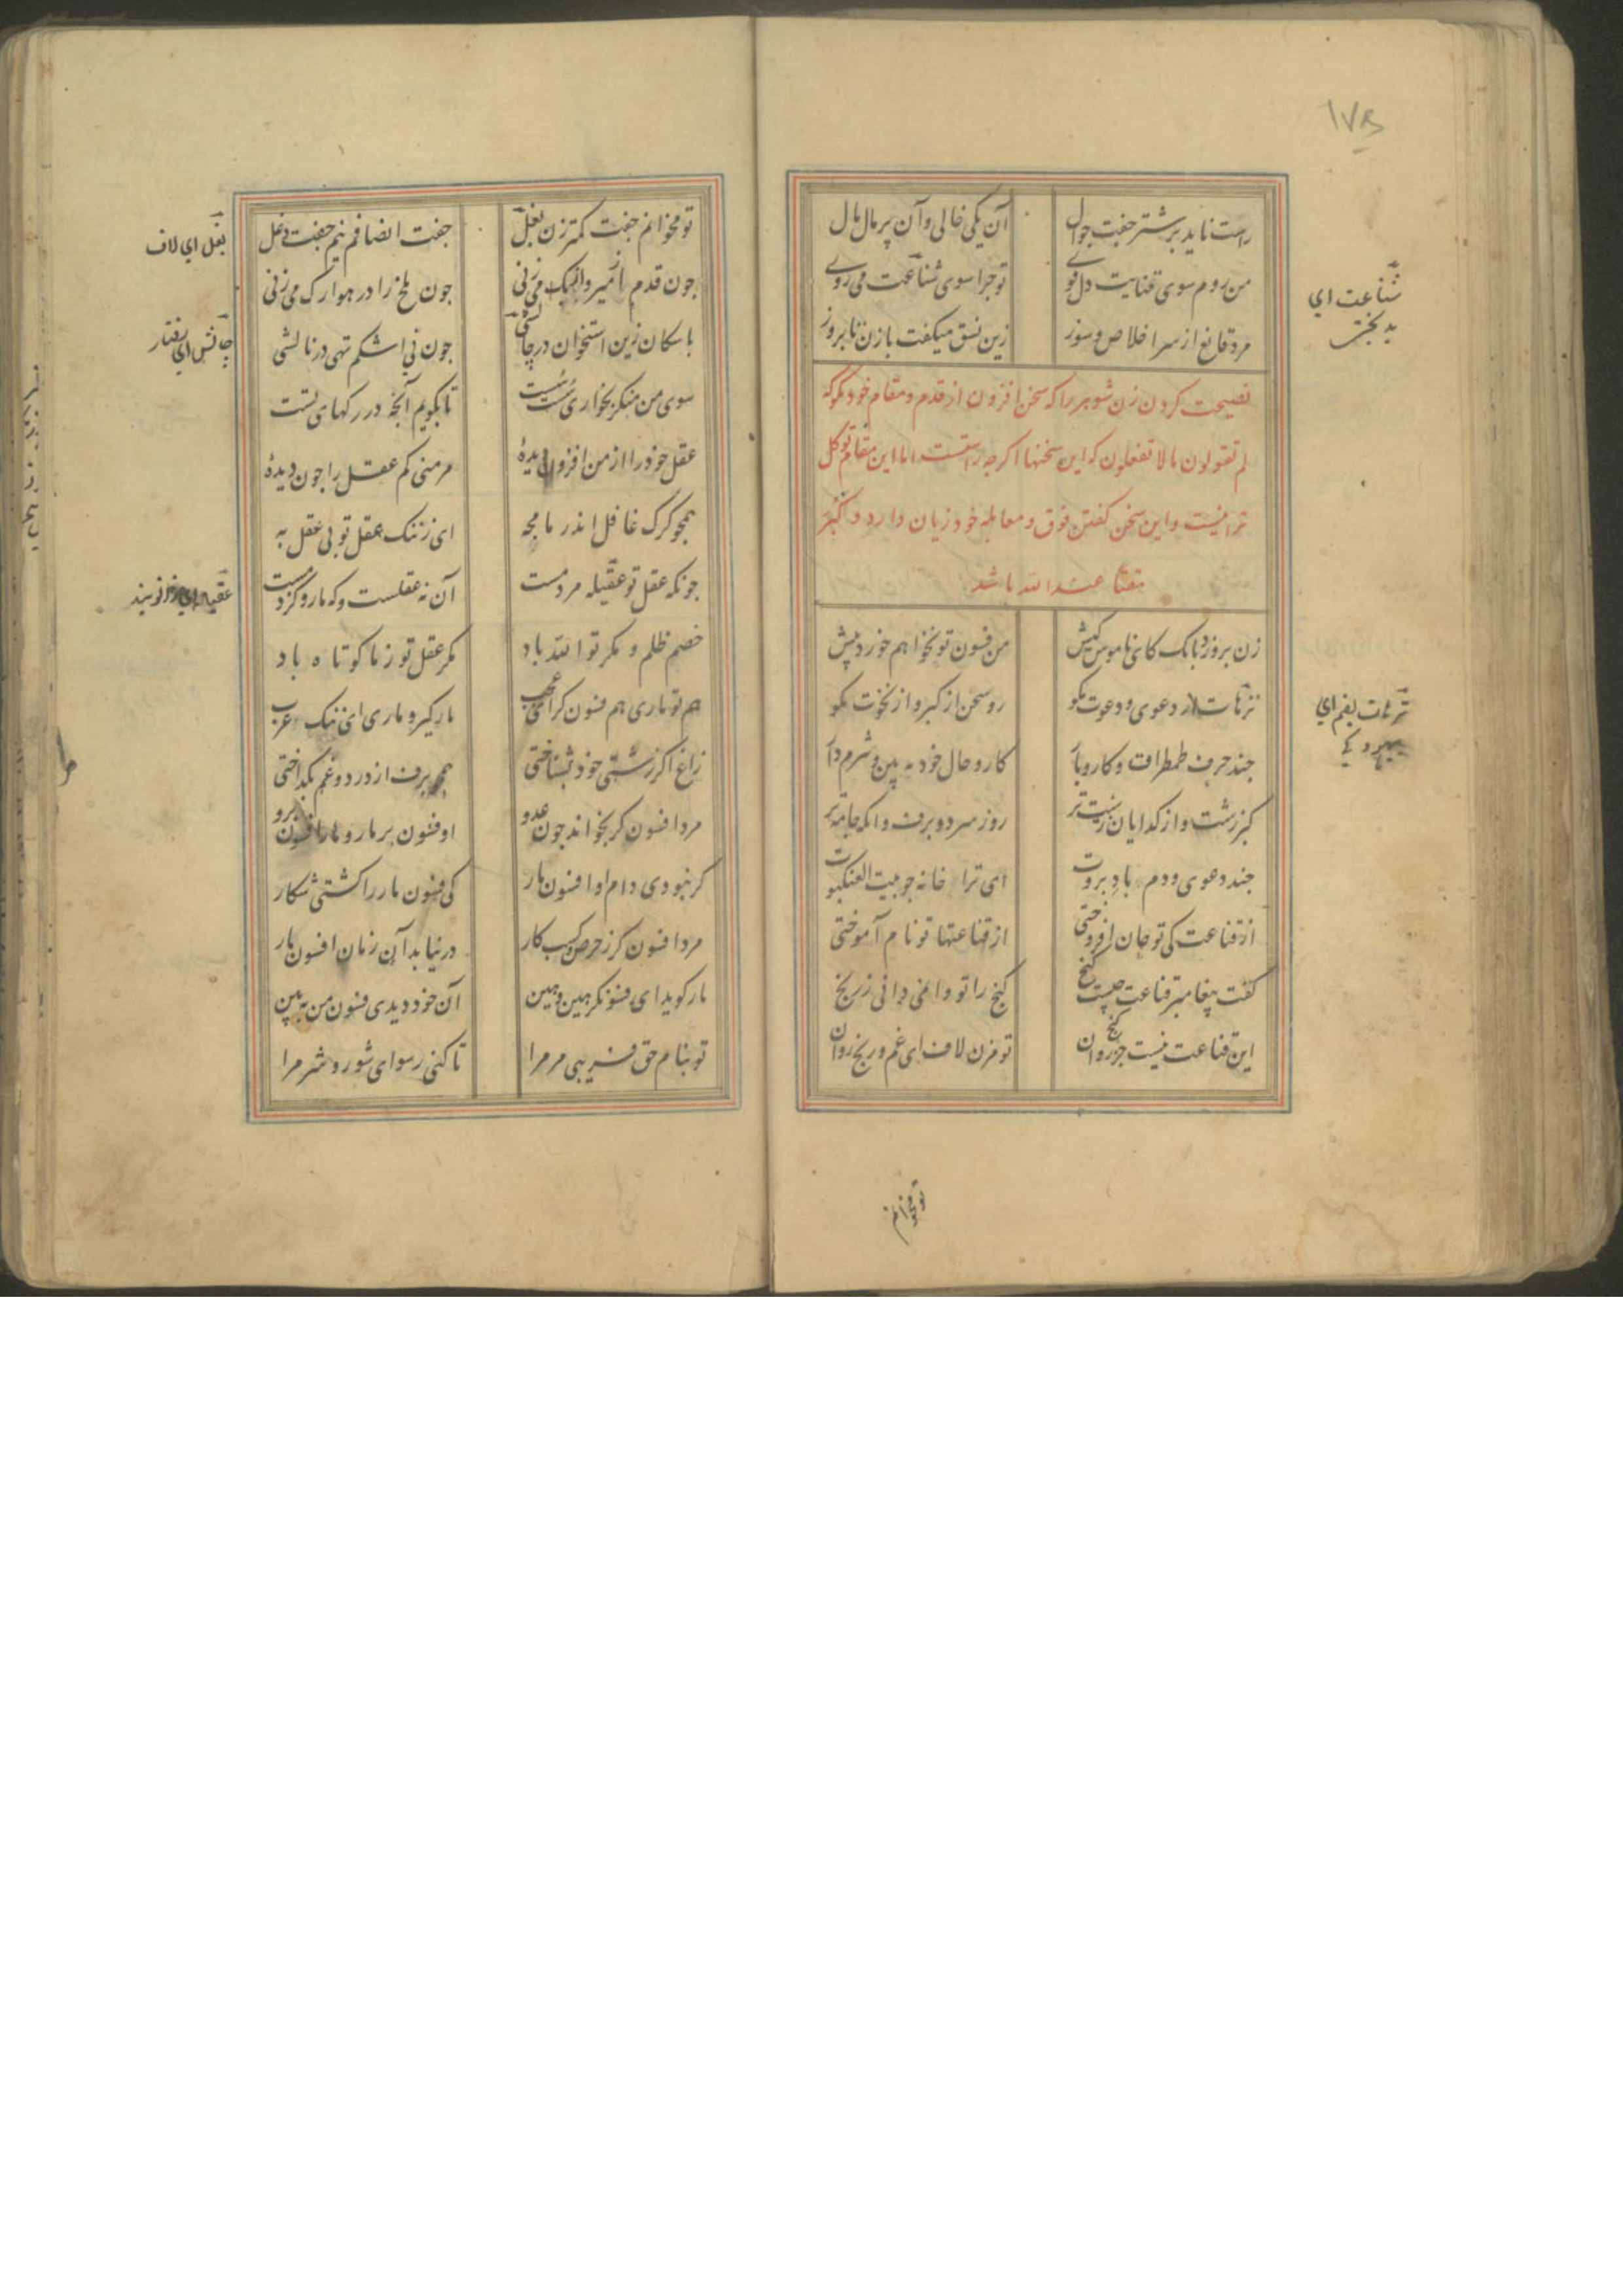 راست ناید بر شتر جفت جوال آن یکی خالی و آن پر مال مال
من روم سوی قناعت دل قوی تو جرا سوی شناعت می روی
مرد قانع از سر اخلاص و سوز زین نسق میکفت با زن تا بروز
نصیحت کردن زن شوهر را که سخن افزون از قدم و مقام خود مکو که
لم تقولون ما لا تفعلون که این سخنها اکرجه راستست اما این مقام توکل
ترا نیست و این سخن کفتن فوق و معامله خود زیان دارد و کبر
مقتا عند الله باشد
زن برو زد بانک کای ناموس کیش من فسون تو نخواهم خورد بیش
ترهات از دعوی و دعوت مکو رو سخن از کبر و از نخوت مکو
جند حرف طمطراق و کار و بار کار و حال خود به بین و شرم دار
کبر زشت و از کدایان زشت تر روز سرد و برف وانکه جامه تر
جند دعوی و دم باد بروت ای ترا خانه جو بیت العنکبوت
از قناعت کی تو جان افروختی از قناعتها تو نام آموختی
کفت پیغامبر قناعت جیست کنج کنج را تو وا نمی دانی ز رنج
این قناعت نیست جز کنج روان تو مزن لاف ای غم و رنج روان
شناعت ای
بدبختی
ترهات بضم ای
بیهوده
تو مخوانم
تو مخوانم جفت کمتر زن بغل جفت انصافم نیم جفت دغل
جون قدم از میر و از بک می زنی جون ملخ را در هوا رک می زنی
با سکان زین استخوان در جالشی جون نی اشکم تهی در نالشی
سوی من منکر بخواری سست سست تا نکویم آنجه در رکهای تست
عقل خود را از من افزون دیدهٔ مر منی کم عقل را جون دیدهٔ
همجو کرک غافل اندر ما مجه ای ز ننک عقل تو بی عقل به
جونکه عقل تو عقیله مردمست آن نه عقلست و که مار و کزدمست
خصم ظلم و مکر تو الله باد مکر عقل تو ز ما کوتاه باد
هم تو ماری هم فسون کر ای عجب مار کیر و ماری ای ننک عرب
زاغ اکر زشتی خود بشناختی همجو برف از درد و غم بکداختی
مرد افسون کر بخواند جون عدو او فسون بر مار و مار افسون برو
کر نبودی دام او افسون مار کی فسون مار را کشتی شکار
مرد افسون کر ز حرص کسب کار در نیابد آن زمان افسون مار
مار کوید ای فسونکر هین و هین آن خود دیدی فسون من به بین
تو بنام حق فریبی مر مرا تا کنی رسوای شور و شر مرا
بغل ای لاف
جالش ای رفتار